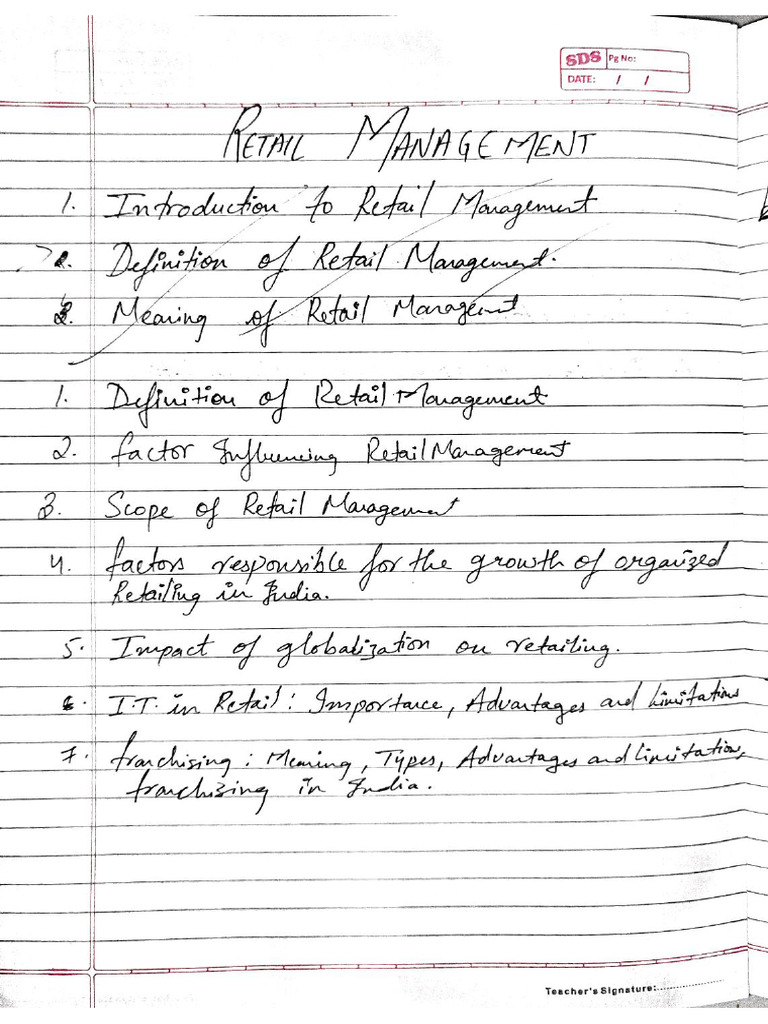 SDS Pg No:
DATE: / /
RETAIL MANAGEMENT
1. Introduction to Retail Management
2. Definition of Retail Management.
3. Meaning of Retail Management
1. Definition of Retail Management
2. factor Influencing Retail Management
3. Scope of Retail Management
4. factors responsible for the growth of organized
Retailing in India.
5. Impact of globalization on retailing.
6. I.T. in Retail: Importance, Advantages and limitations
7. franchising: Meaning, Types, Advantages and limitation,
franchizing in India.
Teacher's Signature:................